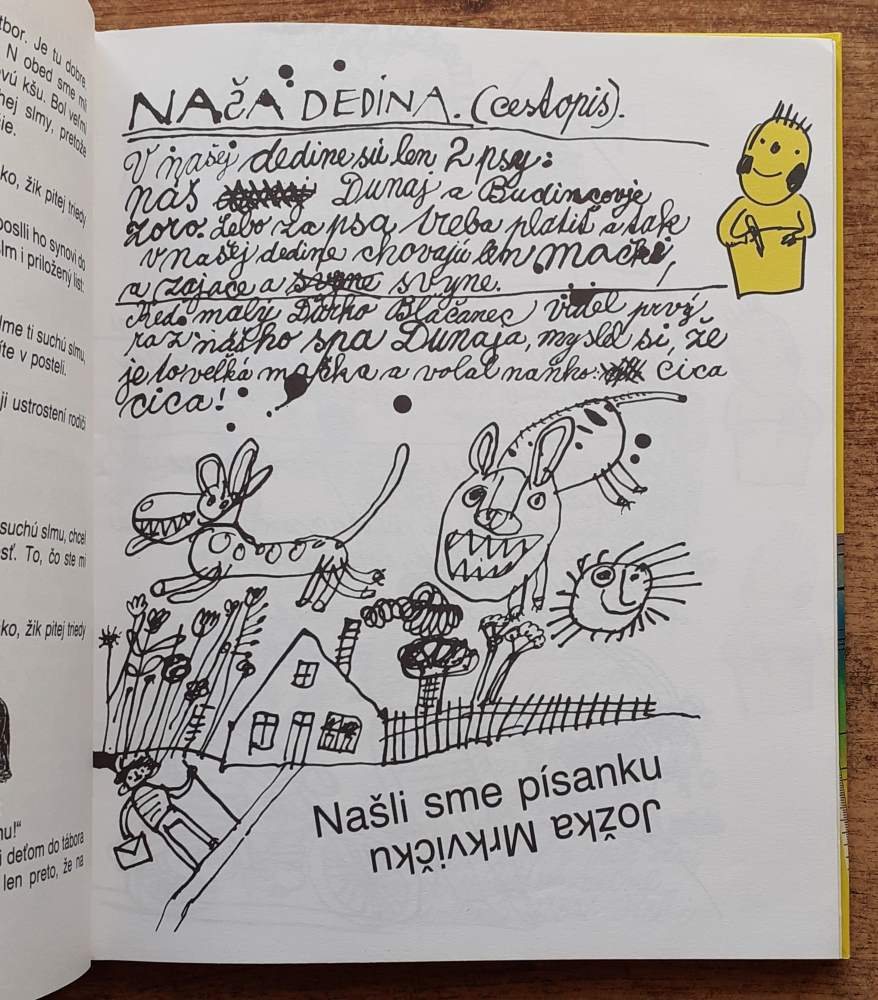 tbor. Je tu dobre.
N obed sme mli
vú kšu. Bol veľmi
hej slmy, pretože
ie.
ko, žik pitej triedy
poslli ho synovi do
slm i priložený list:
lme ti suchú slmu,
íte v posteli.
ji ustrostení rodiči
suchú slmu, chcel
sť. To, čo ste mi
ko, žik pitej triedy
hu!“
i deťom do tábora
len preto, že na
NAČA DEDINA. (cestopis).
V našej dedine sú len 2 psy:
náš Dunaj a Budincovje
zoro. Lebo za psa treba platiť a tak
v našej dedine chovajú len mački,
a zajace a svyne svyne.
Keď malý Ďurko Blačanec videl prvý
raz nášho spa Dunaja, myslel si, že
je to veľká mačka a volal naňho: čica
čica!
Našli sme písanku
Jožka Mrkvičku